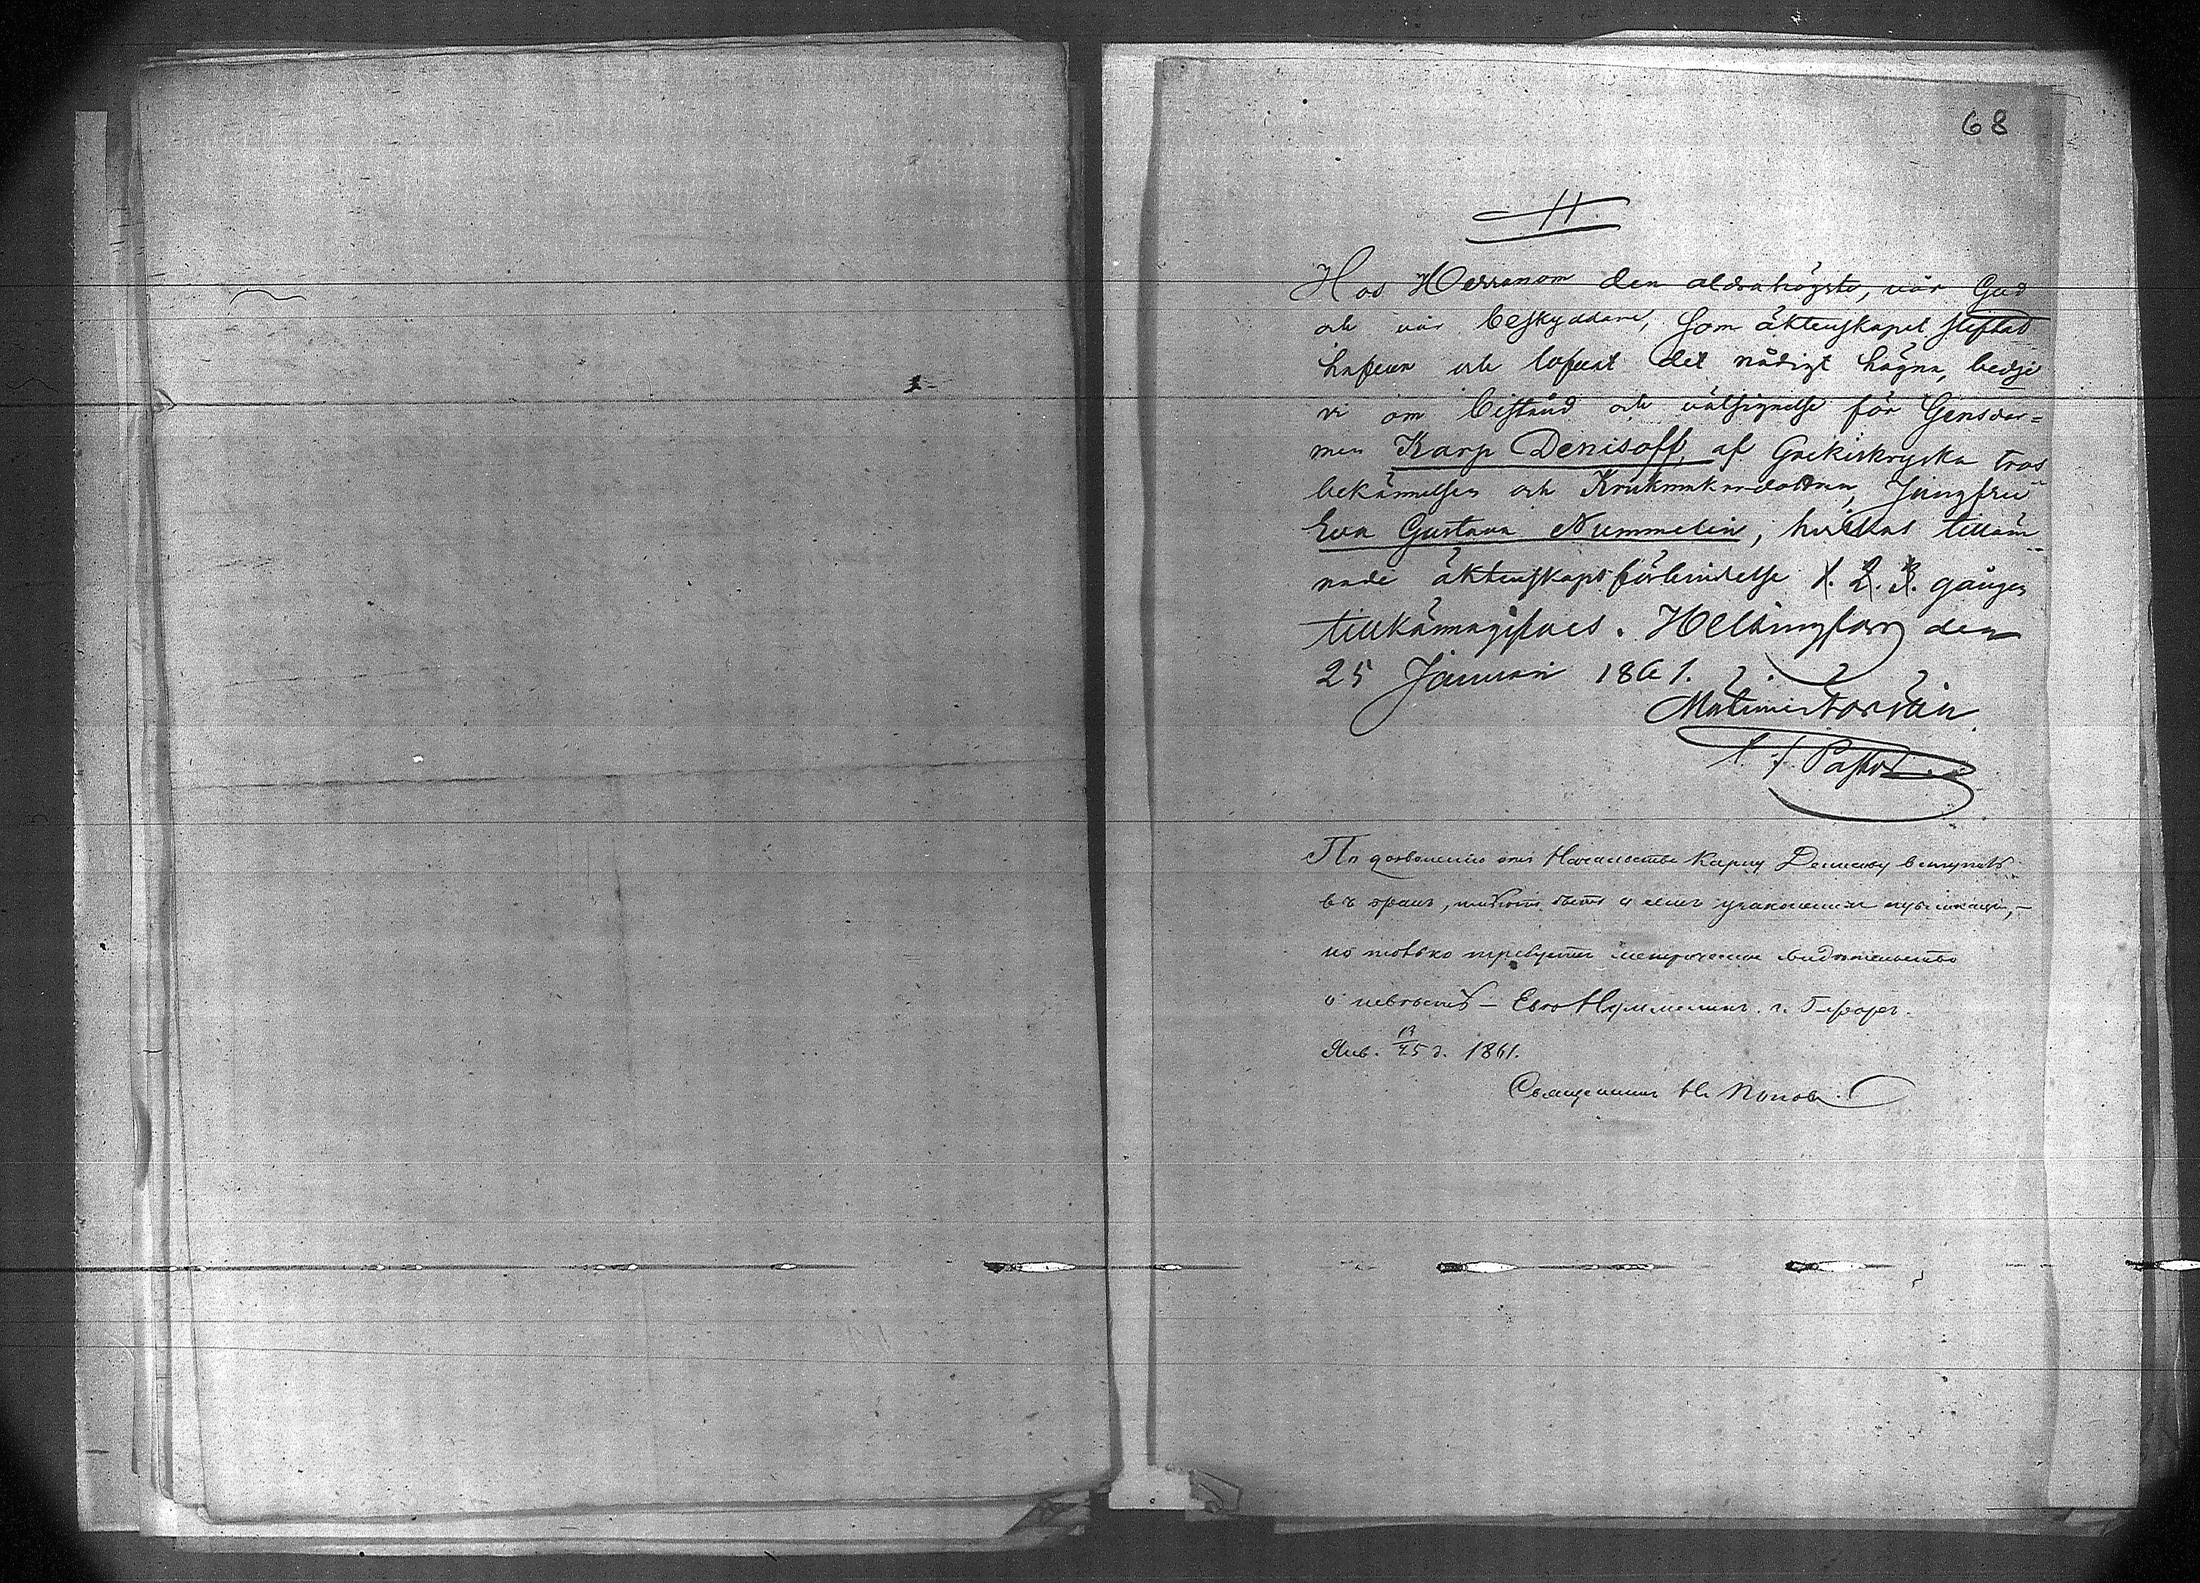 68
11.
Hos Herranom den aldrahögste, vår Gud
och vår beskyddare, som äktenskapet stiftat
hafver och lofvat det nådigt hägna, bedje
vi om bistånd och välsignelse för Gensdar=
men Karp Denisoff, af Grekiskryska tros
bekännelsen och Krukmakaredottren, Jungfru
Eva Gustava Nummelin, hvilkas tilläm
nade äktenskapsförbindelse 1. 2. 3. gången
tillkännagifves. Helsingfors den
25 Januari 1861.
Pastor
По дозволенію отъ Начальства Карпу Денисову вступить
въ бракъ, можетъ быть о семъ узаконенная публикація,-
но только требуется метрическое свидѣтельство
о невѣстѣ - Евѣ Нуммелинъ. г. Г-форсъ.
Янв. 13/25 д. 1861.
Священникъ Н. Поповъ.